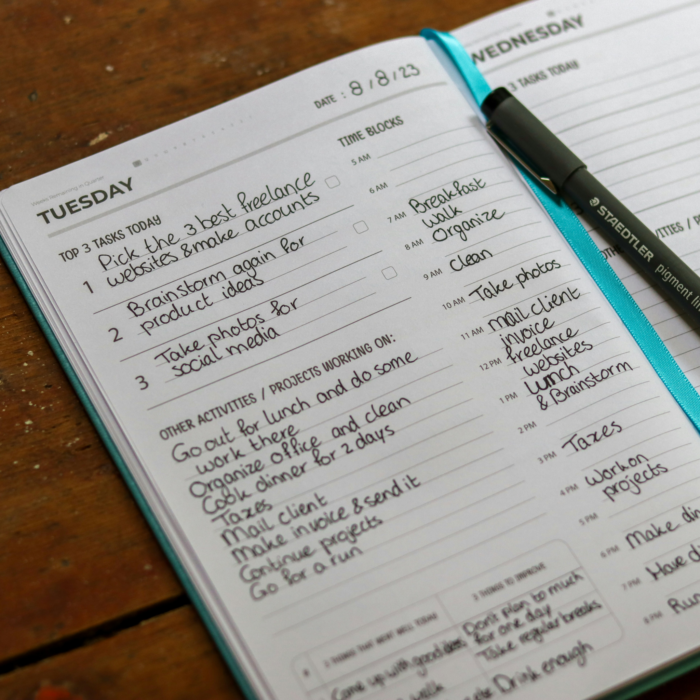 DATE : 8 / 8 / 23
TUESDAY
TOP 3 TASKS TODAY
1 Pick the 3 best freelance
websites & make accounts
2 Brainstorm again for
product ideas
3 Take photos for
social media
OTHER ACTIVITIES / PROJECTS WORKING ON:
Go out for lunch and do some
work there
Organize office and clean
Cook dinner for 2 days
Taxes
Mail client
Make invoice & send it
Continue projects
Go for a run
3 THINGS THAT WENT WELL TODAY
Came up with good ideas
walk
3 THINGS TO IMPROVE
Don't plan to much
for one day
Take regular breaks
Drink enough
TIME BLOCKS
5 AM
6 AM
7 AM Breakfast
walk
8 AM Organize
9 AM Clean
10 AM Take photos
11 AM Mail client
invoice
12 PM freelance
websites
lunch
1 PM & Brainstorm
2 PM
3 PM Taxes
4 PM Work on
projects
5 PM
6 PM Make din
7 PM Have di
8 PM Run
WEDNESDAY
3 TASKS TODAY
VITIES / P
STAEDTLER pigment lin